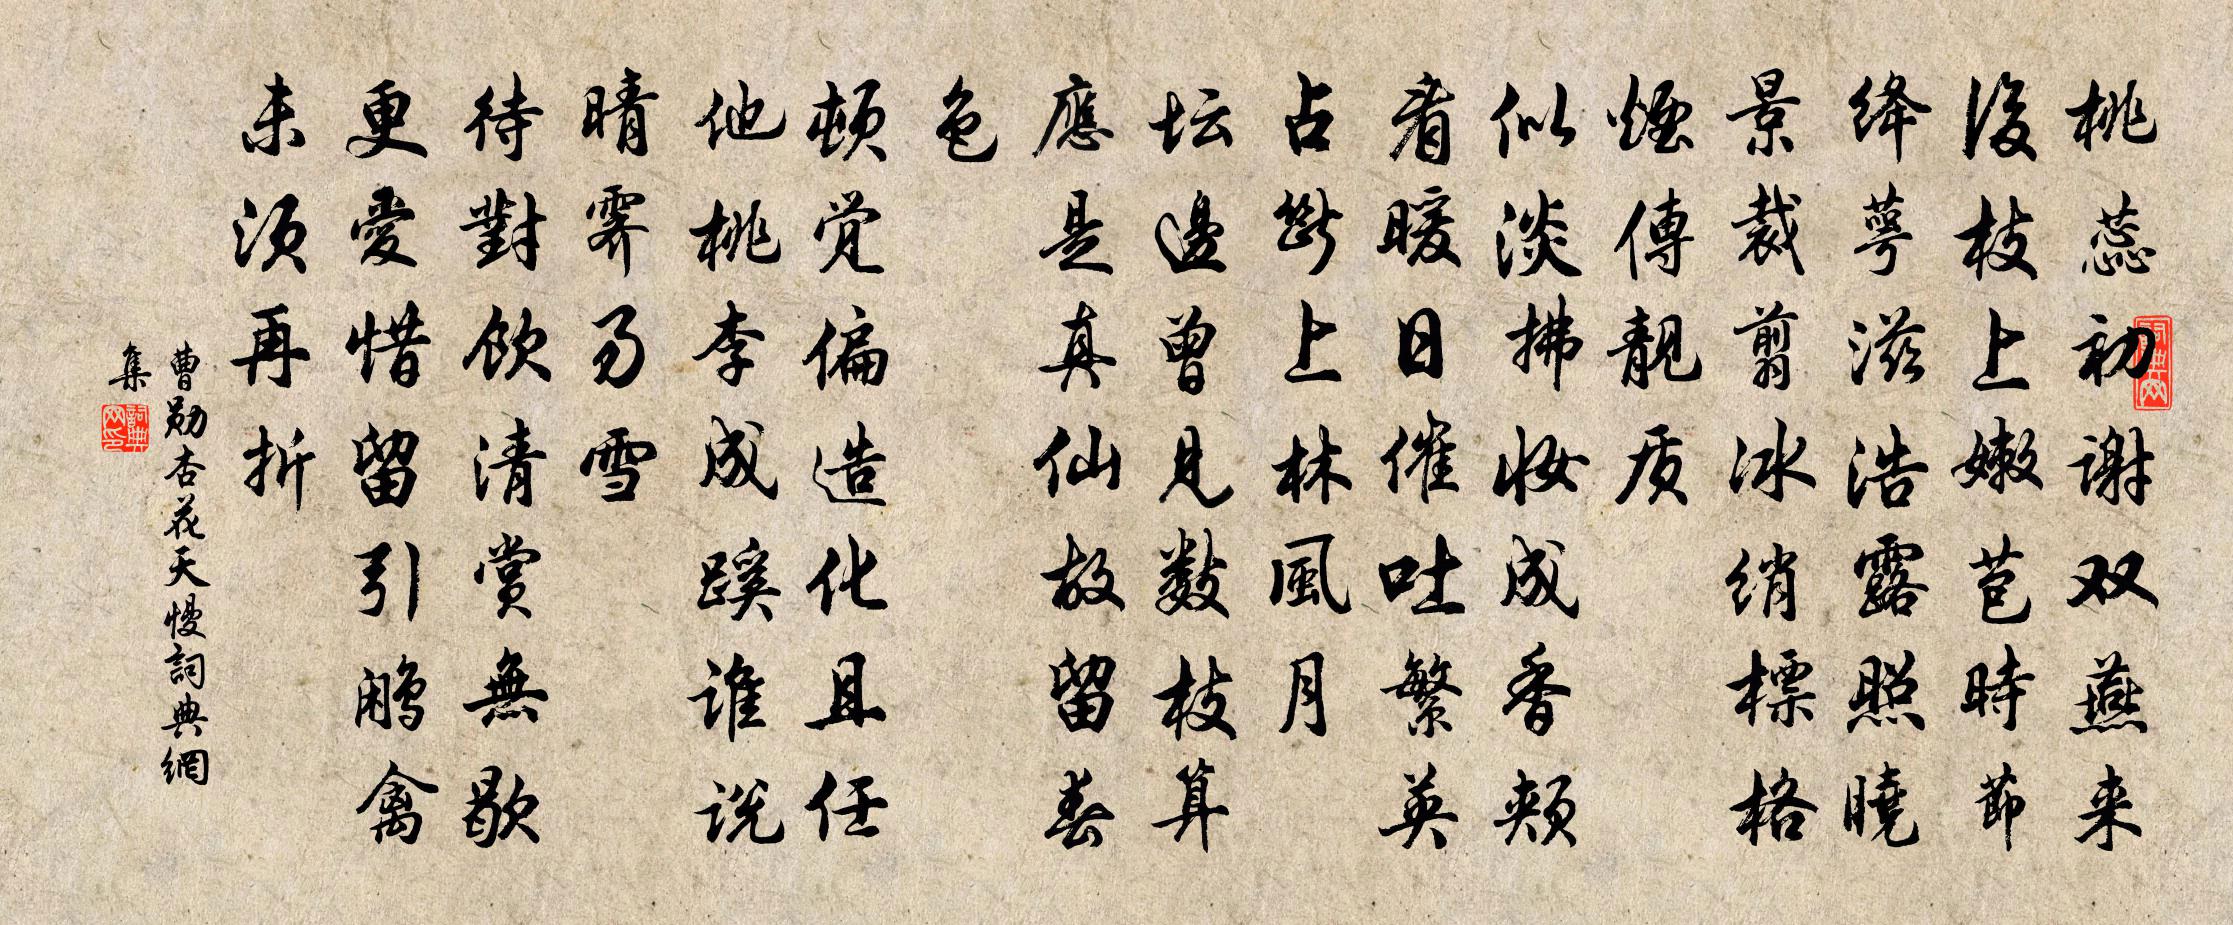 桃蕊初谢双燕来
後枝上嫩苞時節
绛萼滋浩露照曉
景裁剪冰绡標格
煙傳靚质
似淡拂妆成香颊
看暖日催吐繁英
占斷上林風月
坛邊曾見數枝算
應是真仙故留春
色
頓觉偏造化且任
他桃李成蹊谁说
晴霽易雪
待對飲清赏無歇
更愛惜留引鹇禽
未须再折
曹勋杏花天慢詞典網
集
詞典网印